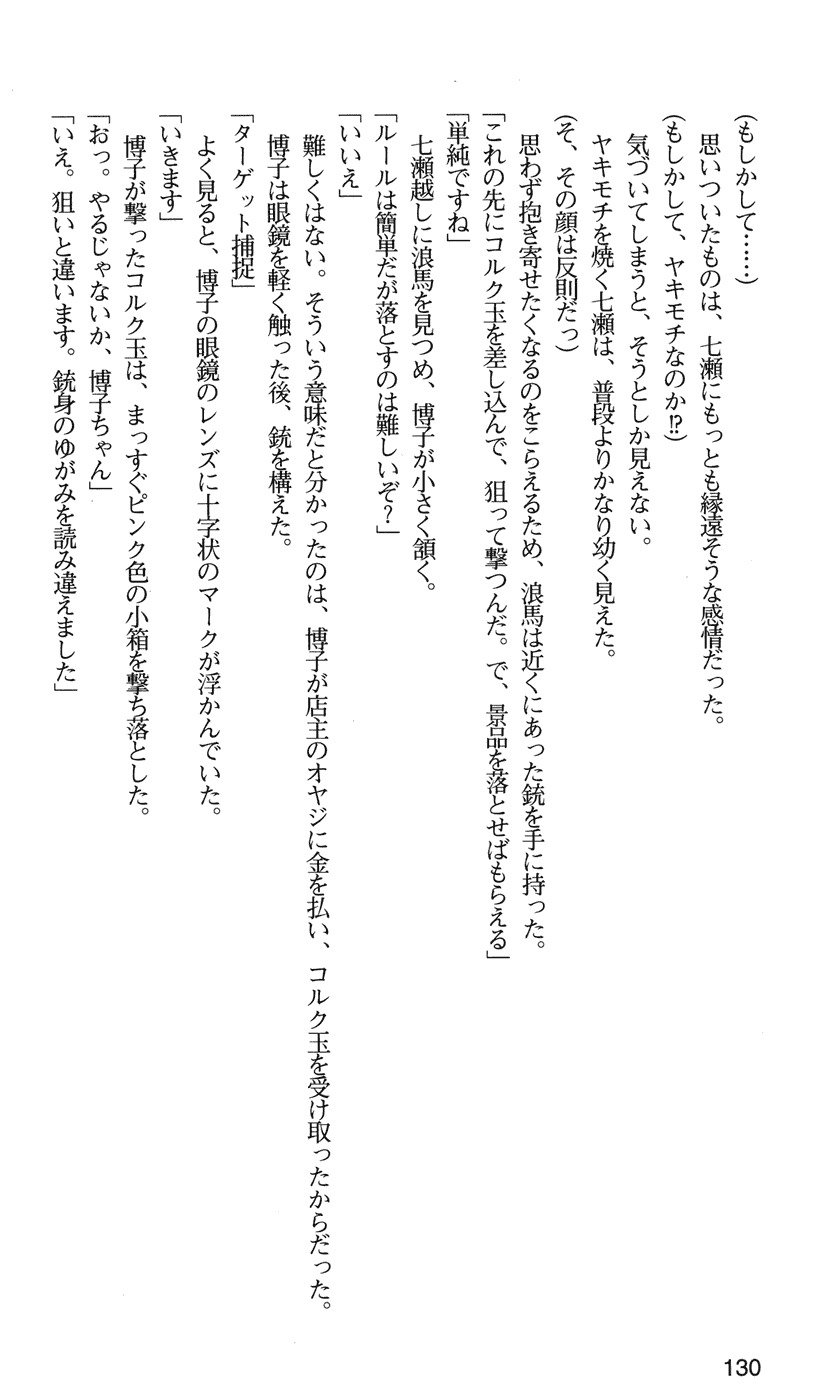 (もしかして……)
思いついたものは、七瀬にもっとも縁遠そうな感情だった。
(もしかして、ヤキモチなのか⁉)
気づいてしまうと、そうとしか見えない。
ヤキモチを焼く七瀬は、普段よりかなり幼く見えた。
(そ、その顔は反則だっ)
思わず抱き寄せたくなるのをこらえるため、浪馬は近くにあった銃を手に持った。
「これの先にコルク玉を差し込んで、狙って撃つんだ。で、景品を落とせばもらえる」
「単純ですね」
七瀬越しに浪馬を見つめ、博子が小さく頷く。
「ルールは簡単だが落とすのは難しいぞ?」
「いいえ」
難しくはない。そういう意味だと分かったのは、博子が店主のオヤジに金を払い、コルク玉を受け取ったからだった。
博子は眼鏡を軽く触った後、銃を構えた。
「ターゲット捕捉」
よく見ると、博子の眼鏡のレンズに十字状のマークが浮かんでいた。
「いきます」
博子が撃ったコルク玉は、まっすぐピンク色の小箱を撃ち落とした。
「おっ。やるじゃないか、博子ちゃん」
「いえ。狙いと違います。銃身のゆがみを読み違えました」
130